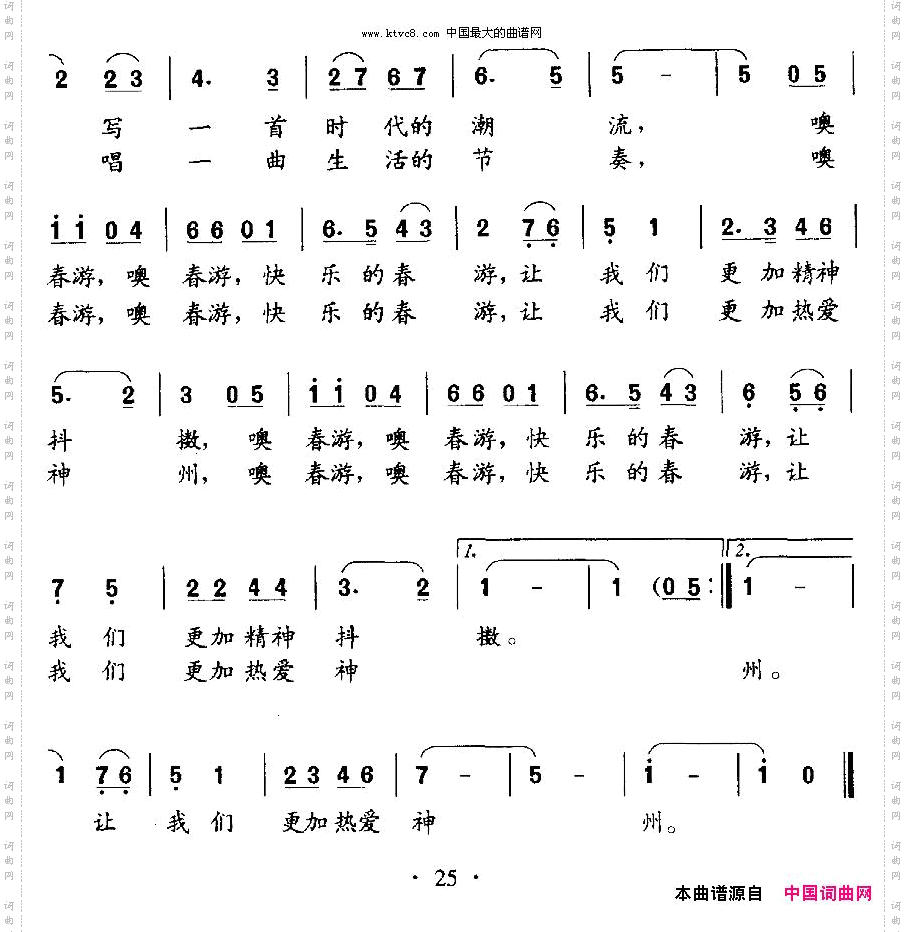 www.ktvc8.com 中国最大的曲谱网
2 2 3 | 4. 3 | 2 7 6 7 | 6. 5 | 5 - | 5 0 5 |
写 一 首 时 代 的 潮 流， 噢
唱 一 曲 生 活 的 节 奏， 噢
i i 0 4 | 6 6 0 1 | 6. 5 4 3 | 2 7 6 | 5 1 | 2. 3 4 6 |
春游，噢 春游，快 乐 的 春 游，让 我 们 更 加 精神
春游，噢 春游，快 乐 的 春 游，让 我 们 更 加 热爱
5. 2 | 3 0 5 | i i 0 4 | 6 6 0 1 | 6. 5 4 3 | 6 5 6 |
抖 擞，噢 春游，噢 春游，快 乐 的 春 游，让
神 州，噢 春游，噢 春游，快 乐 的 春 游，让
1. 2.
7 5 | 2 2 4 4 | 3. 2 | 1 - | 1 (0 5 :| 1 - |
我 们 更加 精神 抖 擞。
我 们 更加 热爱 神 州。
1 7 6 | 5 1 | 2 3 4 6 | 7 - | 5 - | i - | i 0 ||
让 我 们 更加 热爱 神 州。
· 25 ·
本曲谱源自 中国词曲网
词曲网